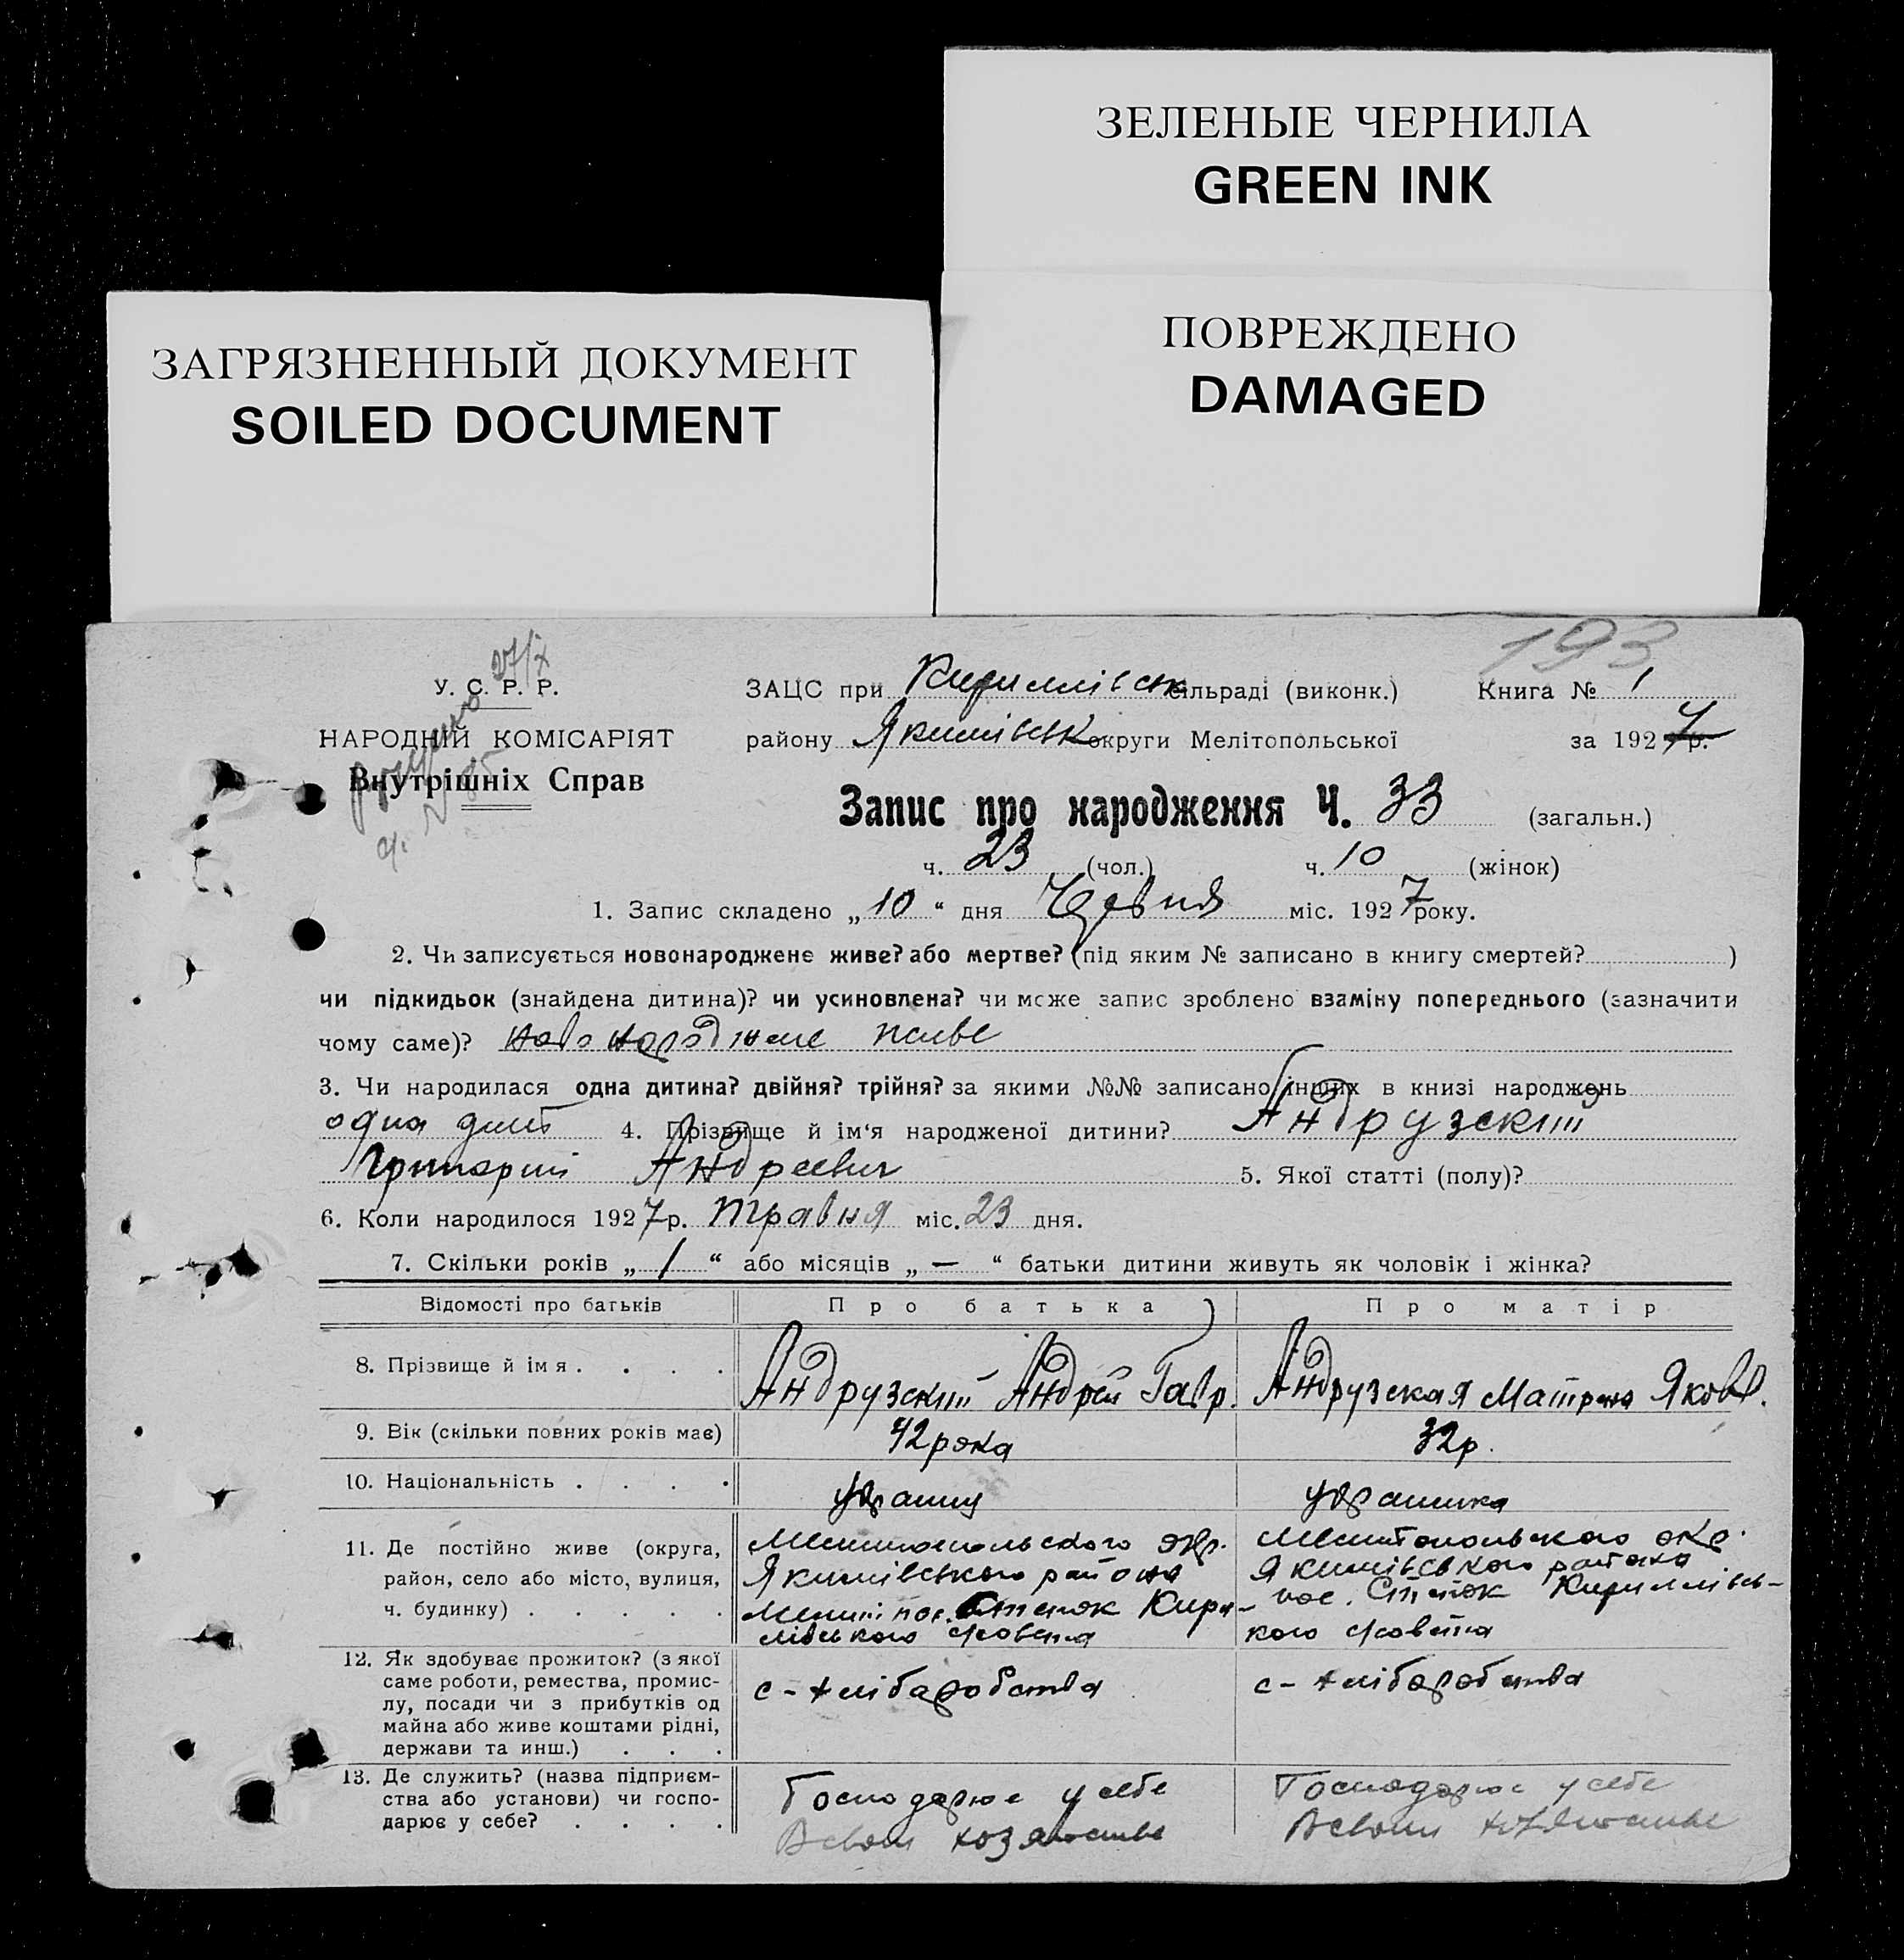 ЗЕЛЕНЫЕ ЧЕРНИЛА
GREEN INK
ЗАГРЯЗНЕННЫЙ ДОКУМЕНТ
SOILED DOCUMENT
ПОВРЕЖДЕНО
DAMAGED
193
27/X
У. С. Р. Р.
НАРОДНІЙ КОМІСАРІЯТ
Внутрішніх Справ
ЗАЦС при Кириллівськ сільраді (виконк.) Книга № 1
району Якимівськ округи Мелітопольської за 1927 р.
Запис про народження Ч. 33 (загальн.)
ч. 23 (чол.) ч. 10 (жінок)
1. Запис складено „ 10 “ дня Червня міс. 1927 року.
2. Чи записується новонароджене живе? або мертве? (під яким № записано в книгу смертей? )
чи підкидьок (знайдена дитина)? чи усиновлена? чи може запис зроблено взаміну попереднього (зазначити
чому саме)? новонароджене живе
3. Чи народилася одна дитина? двійня? трійня? за якими №№ записано інших в книзі народжень
одна дит 4. Прізвище й ім‘я народженої дитини? Андрузский
Григорий Андреевич 5. Якої статті (полу)?
6. Коли народилося 1927 р. травня міс. 23 дня.
7. Скільки років „ 1 “ або місяців „ — “ батьки дитини живуть як чоловік і жінка?
Відомості про батьків Про батька Про матір
8. Прізвище й імя . . . . Андрузский Андрей Гавр. Андрузская Матрена Яковл.
9. Вік (скільки повних років має) 42 рока 32 р.
10. Національність . . . .
11. Де постійно живе (округа,
район, село або місто, вулиця,
ч. будинку) . . . . .
Мелитопольского окр.
Якимівського района
пос. Степок Кири-
лівського
Мелитопольского окр.
Якимівського района
пос. Степок Кириллівсь-
кого
12. Як здобуває прожиток? (з якої
саме роботи, ремества, промис-
лу, посади чи з прибутків од
майна або живе коштами рідні,
держави та инш.) . . .
с-хліборобства
с-хліборобства
13. Де служить? (назва підприєм-
ства або установи) чи госпо-
дарює у себе? . . . .
Господарює у себе
В своем хозяйстве
Господарює у себе
В своем хозяйстве